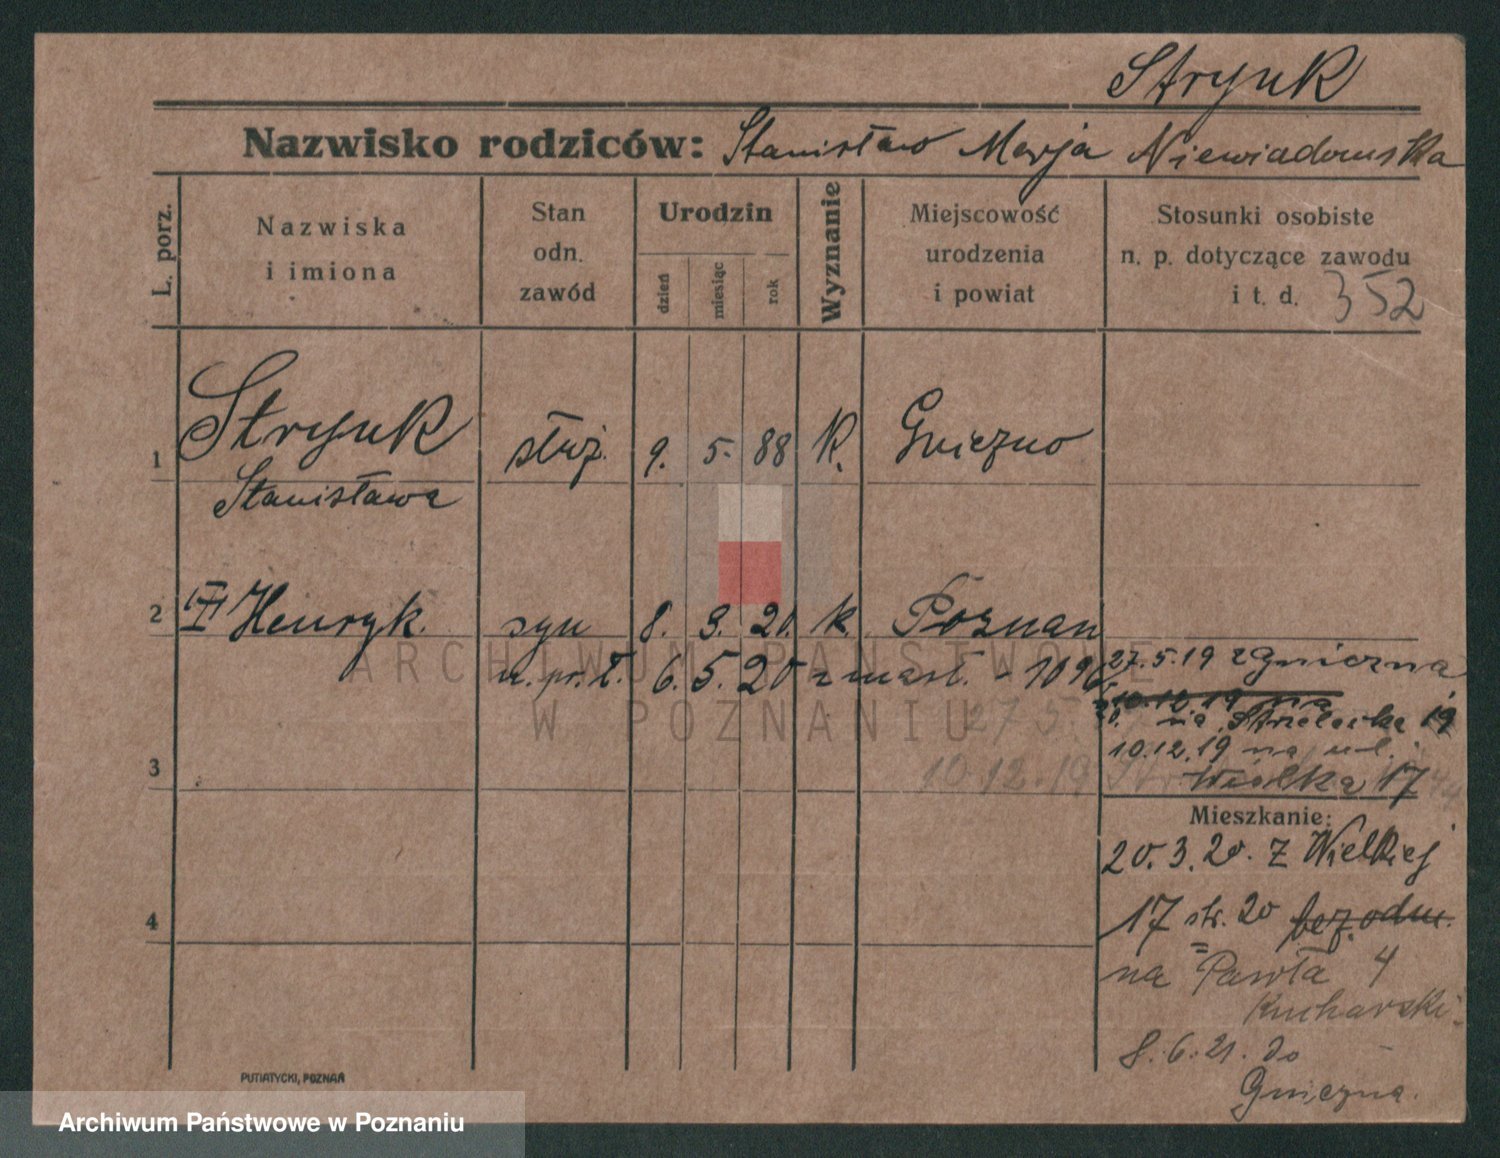 Stryuk
Nazwisko rodziców: Stanisław Marja Niewiadomska
L. porz.
Nazwiska
i imiona
Stan
odn.
zawód
Urodzin
dzień
miesiąc
rok
Wyznanie
Miejscowość
urodzenia
i powiat
Stosunki osobiste
n. p. dotyczące zawodu
i t. d. 352
1 Stryuk służ. 9. 5. 88 K. Gniezno
Stanisława
2 Henryk. syn 8. 3. 20. k. Poznan
6. 5. 20
27.5.19 z Gniezna
10.12.19 na
na Strzelecka 19
10.12.19 na ul.
Wielka 17
27.5.
10.12.19
3
Mieszkanie:
20.3.20. z Wielkiej
4
17 str. 20 bez odm.
na Pawła 4
Kucharski
8.6.21. do
Gniezna.
PUTIATYCKI, POZNAŃ
ARCHIWUM PAŃSTWOWE
W POZNANIU
Archiwum Państwowe w Poznaniu